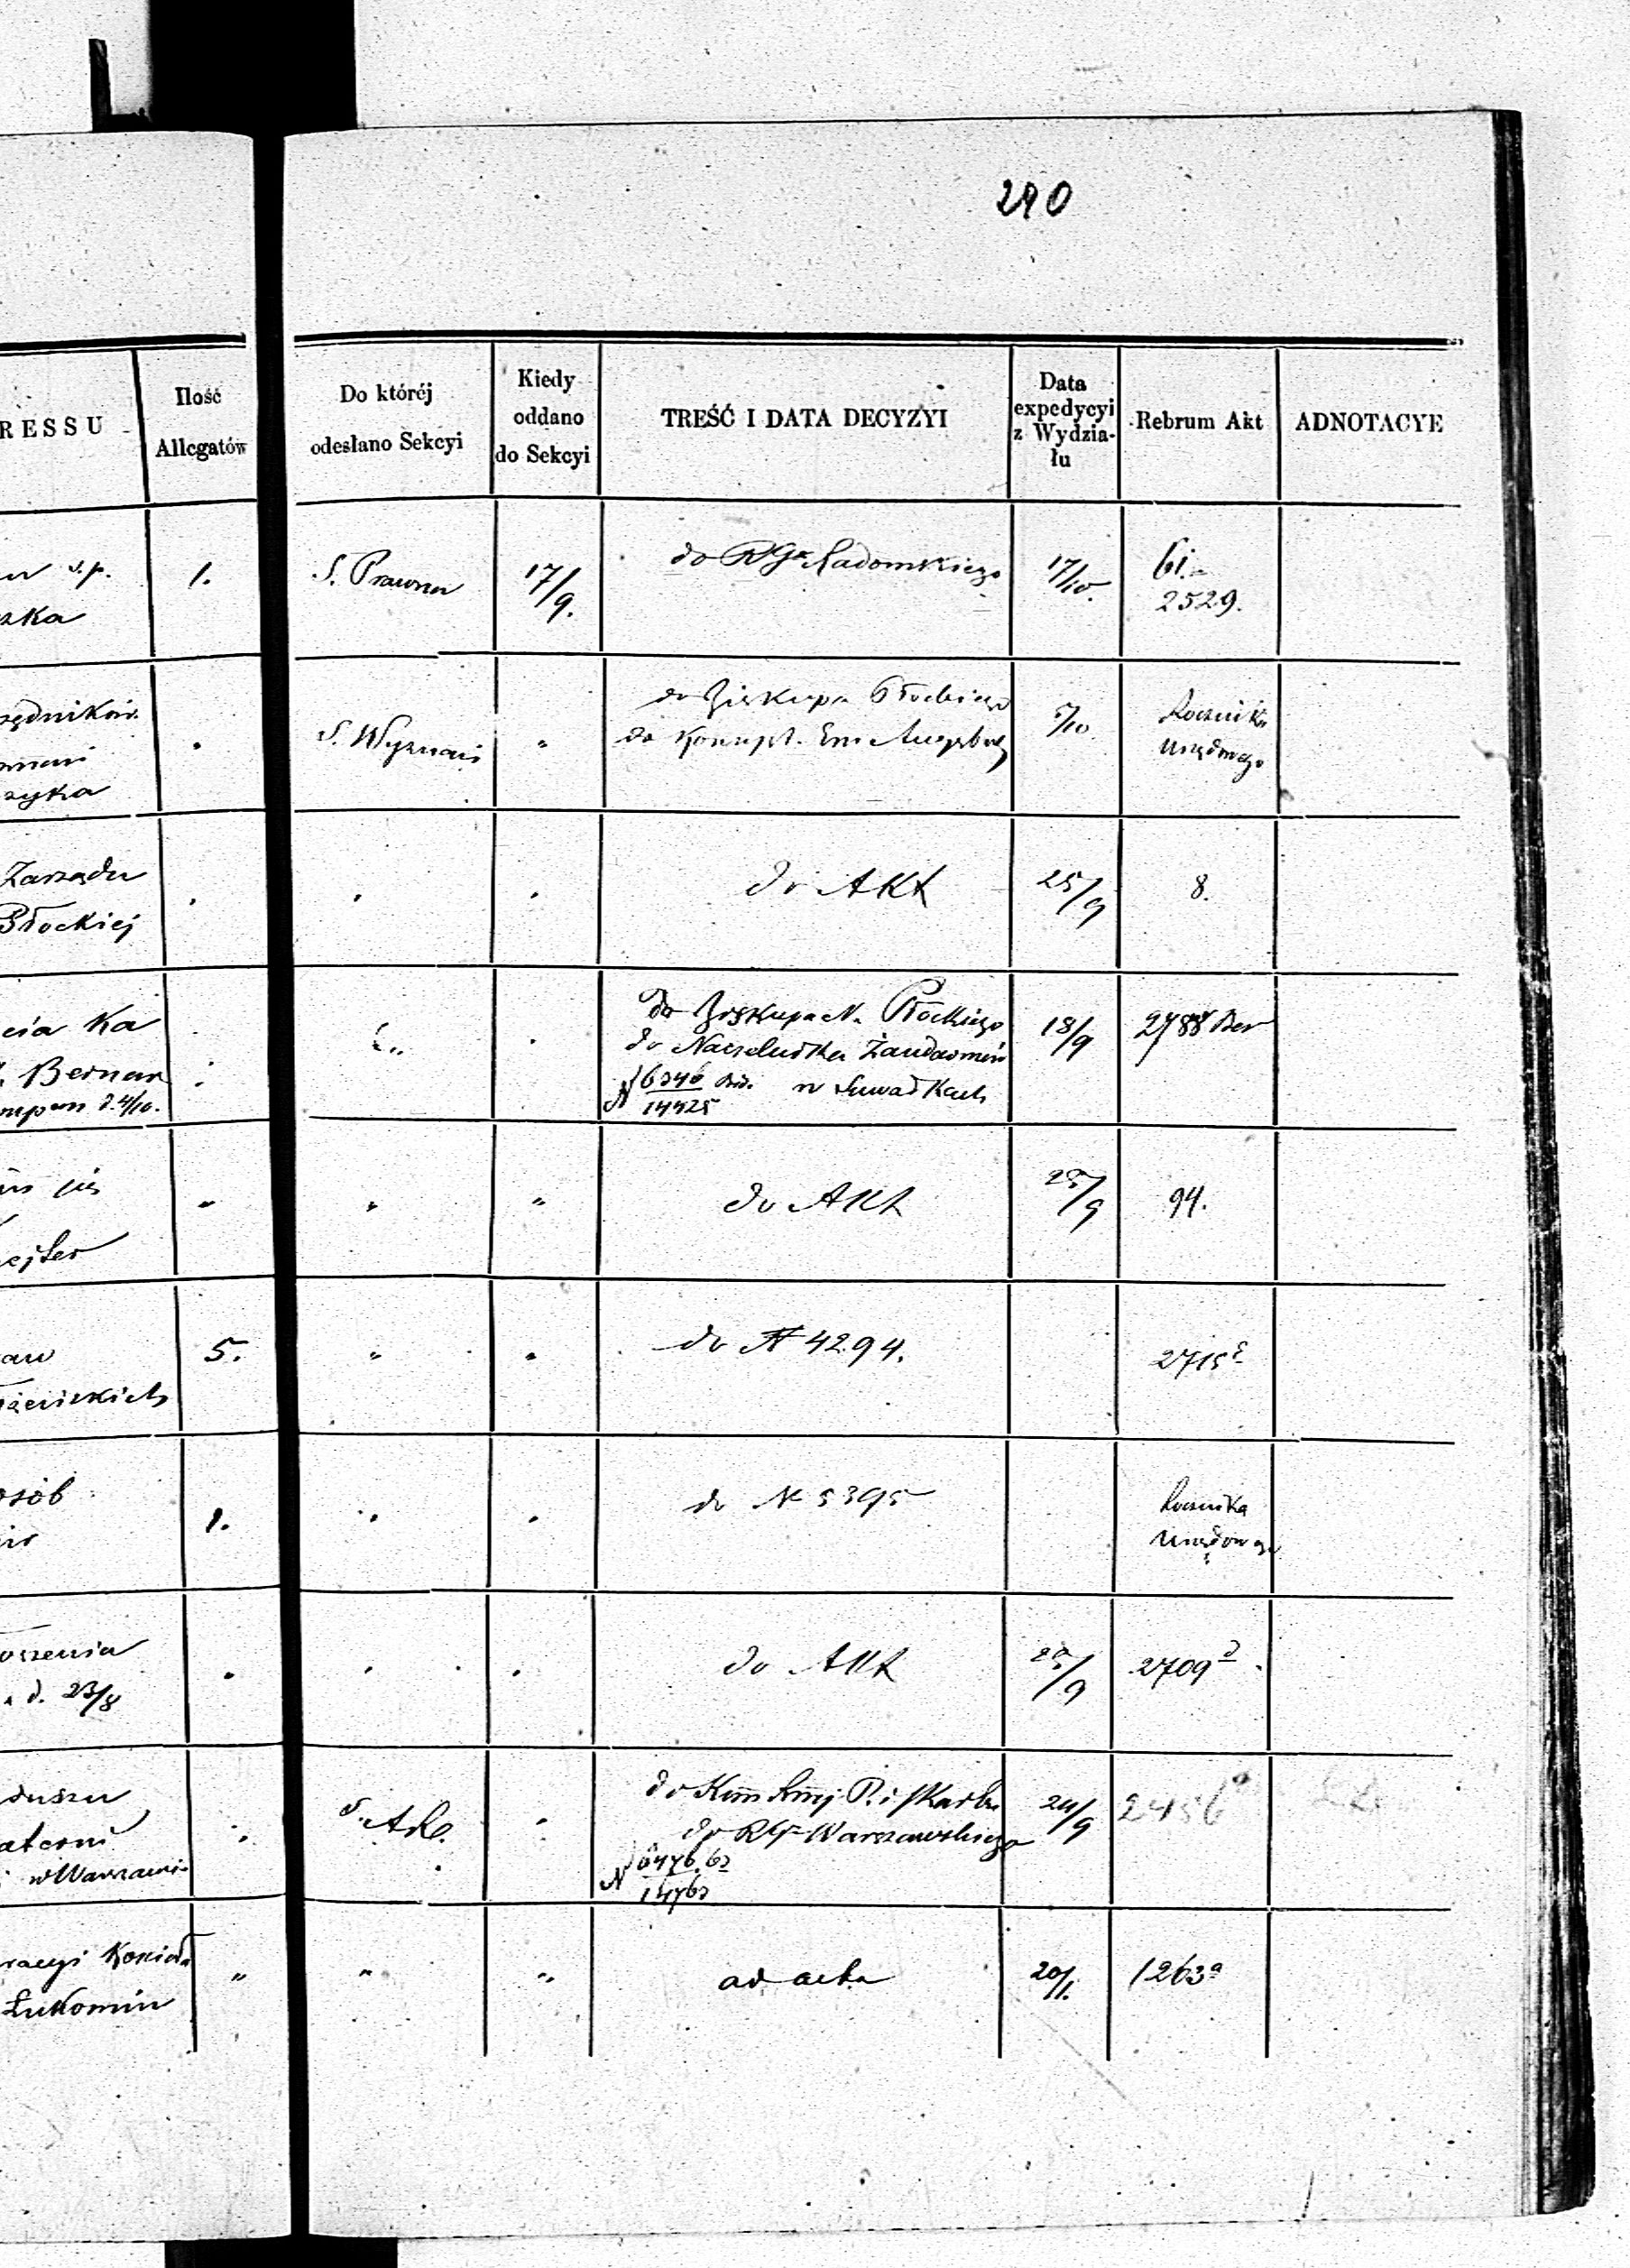 290
RESSU
Ilość
Allegatów
Do której
odesłano Sekcyi
Kiedy
oddano
do Sekcyi
TREŚĆ I DATA DECYZYI
Data
expedycyi
z Wydzia-
łu
Rebrum Akt
ADNOTACYE
s.p.
szka
1.
S. Prawna
17/9.
do RGu Radomskiego
17/10.
61.
2529.
rzędników
szyka
S. Wyznań
"
do Biskupa Płockiego
do Konsyst. Ew. Augsburg
5/10
Rocznika
Urzędowego
Zarządu
Płockiej
do Akt
25/9
8.
cia Ka
Bernar
d. 4/10.
do Biskupa N. Płockiego
do Naczelnika Żandarmów
w Suwałkach
N 6346
14425
18/9
2788
"
"
do Akt
25/9
94.
5.
"
"
do N 4294.
2715
osób
1.
do N 5395
Rocznika
Urzędowego
oszenia
d. 23/8
do Akt
25/9
2709 d
duszu
w Warszawie
do Kom Rząj P. i Skarbu
do RGu Warszawskiego
N 6476.62
14762
24/9
2456
racyi Kościoła
Łukomiu
"
"
"
ad acta
20/1.
1263a